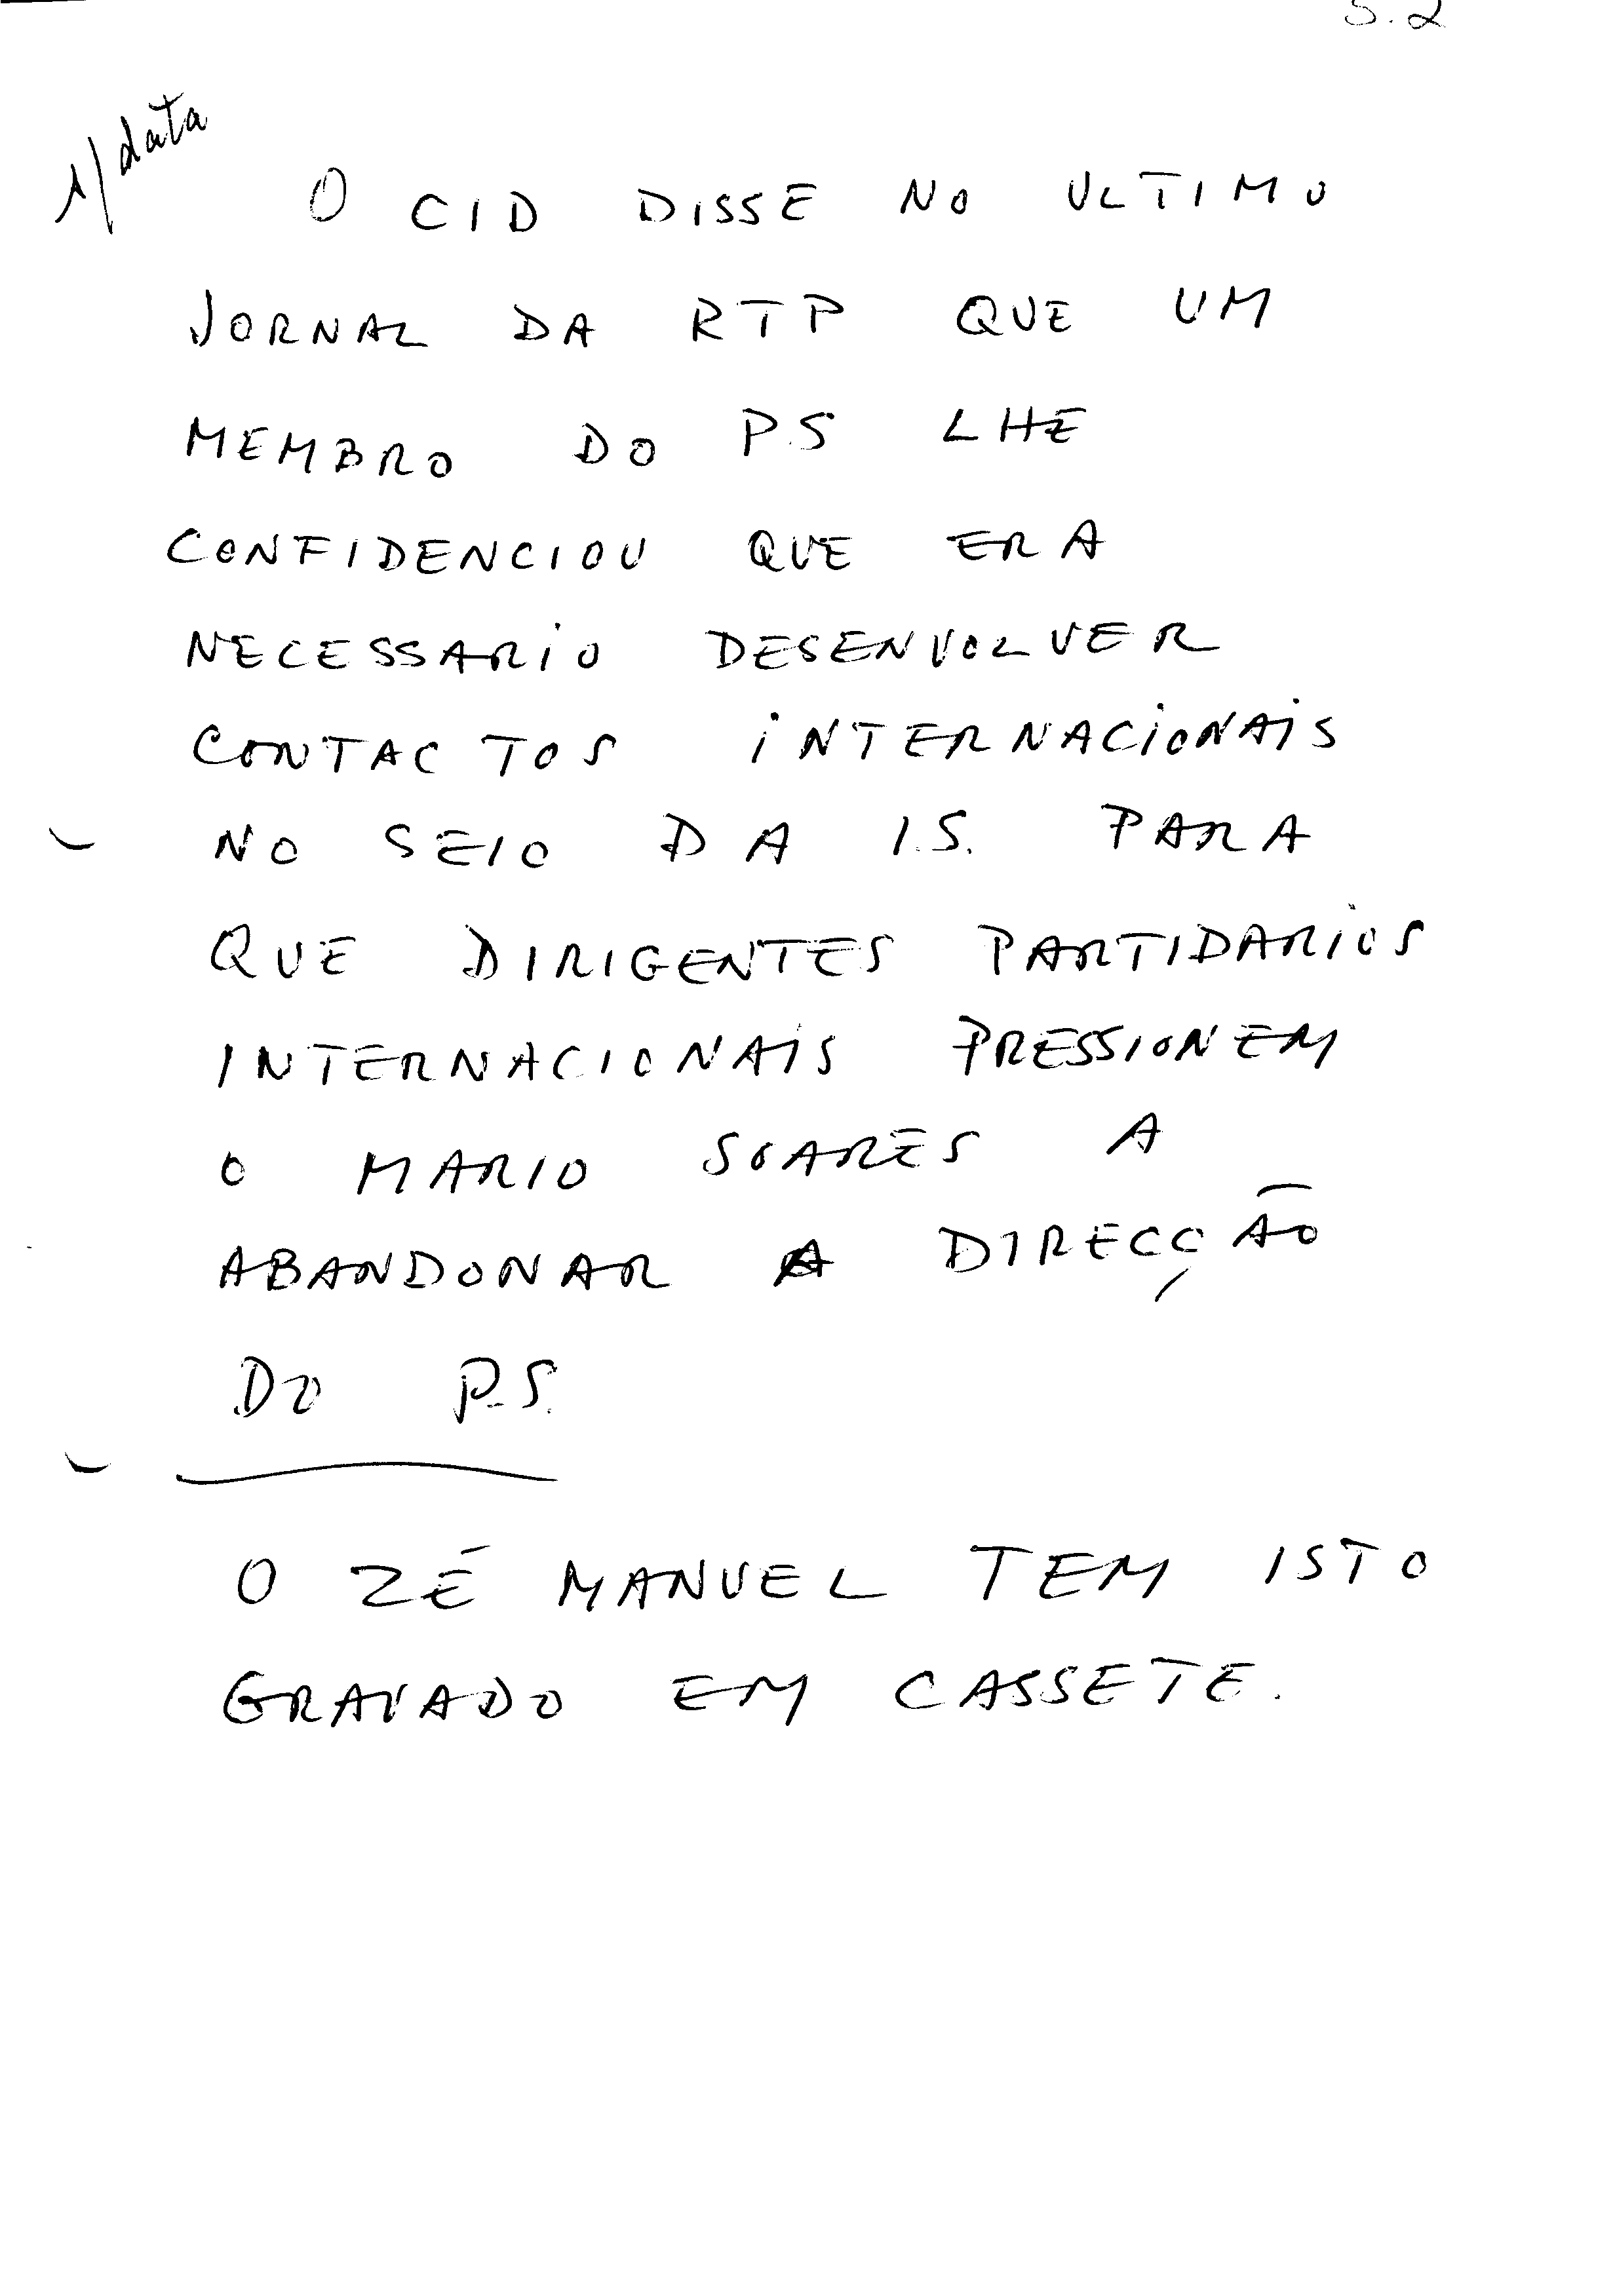 5.2
s/data
O CID DISSE NO ULTIMO
JORNAL DA RTP QUE UM
MEMBRO DO PS LHE
CONFIDENCIOU QUE ERA
NECESSARIO DESENVOLVER
CONTACTOS INTERNACIONAIS
NO SEIO DA I.S. PARA
QUE DIRIGENTES PARTIDARIOS
INTERNACIONAIS PRESSIONEM
O MARIO SOARES A
ABANDONAR A DIRECÇÃO
DO P.S.
O ZÉ MANUEL TEM ISTO
GRAVADO EM CASSETE.